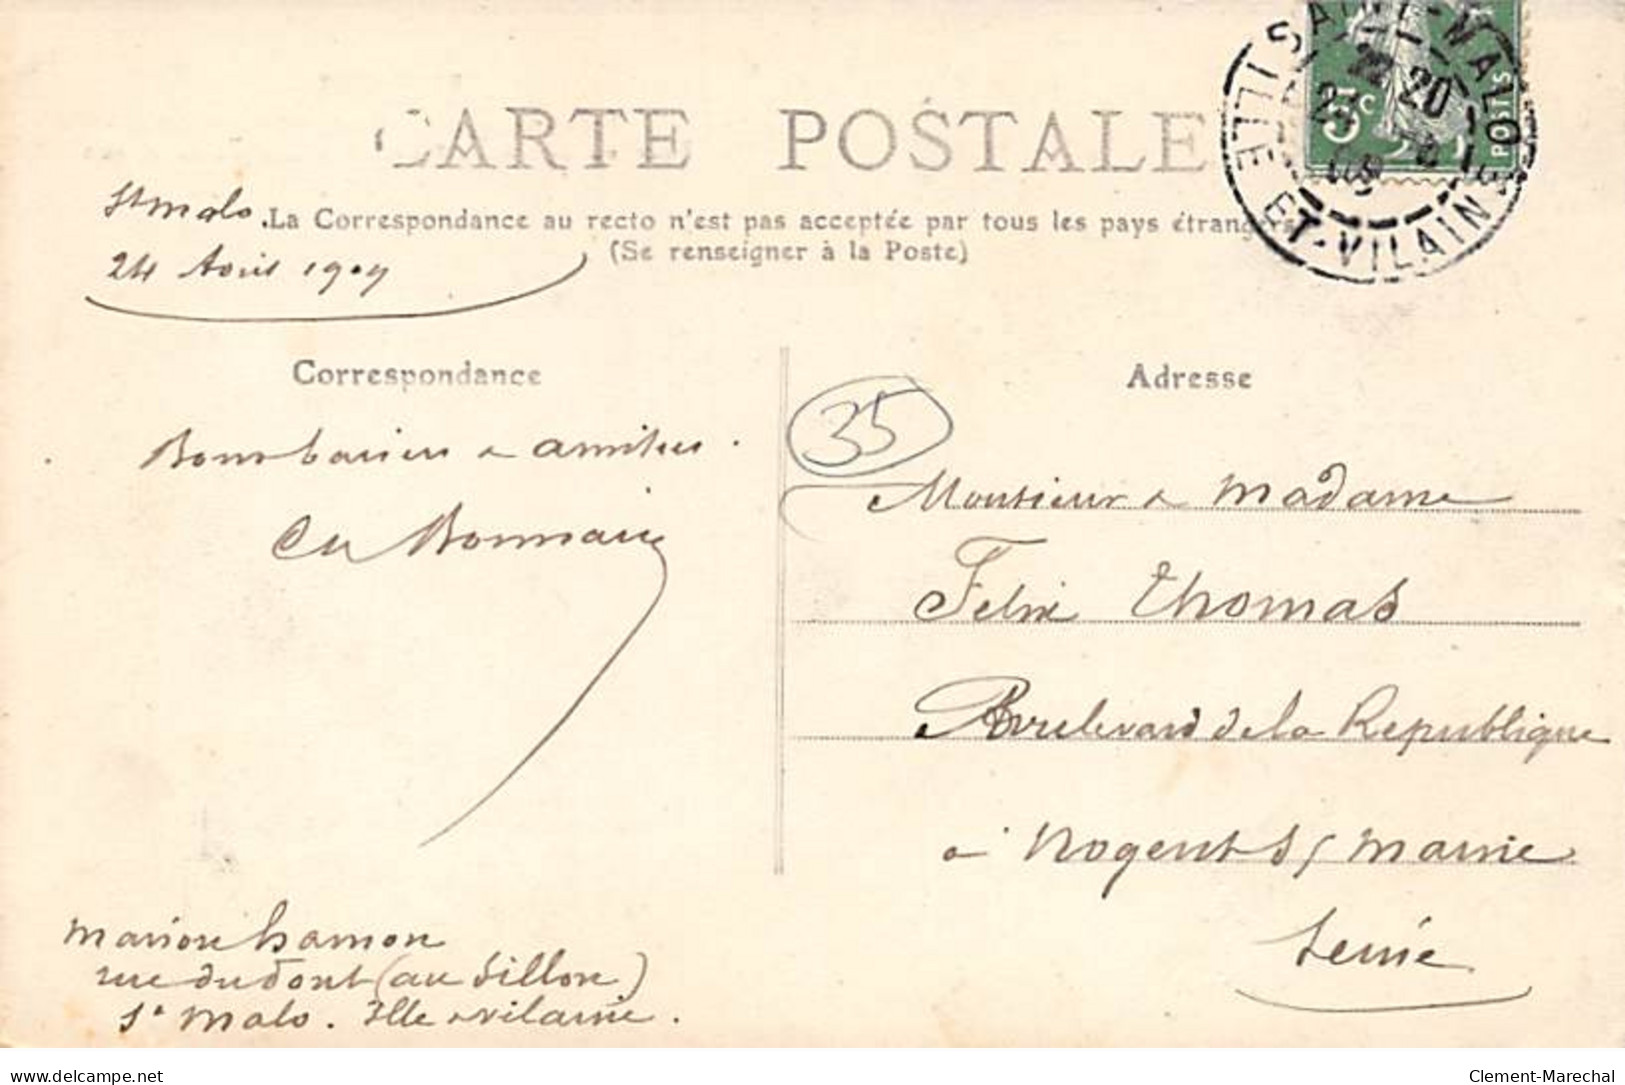 CARTE POSTALE
St malo
La Correspondance au recto n'est pas acceptée par tous les pays étrangers
(Se renseigner à la Poste)
24 Aout 1909
SAINT-MALO
ILLE ET-VILAINE
20
5c
POSTES
Correspondance
Adresse
35
amities
Monsieur & Madame
Felix Thomas
Boulevard de la Republique
a Nogent S/ Marne
Seine
maison hamon
rue du dont (au Sillon)
St Malo. Ille & vilaine.
delcampe.net
Clement-Marechal